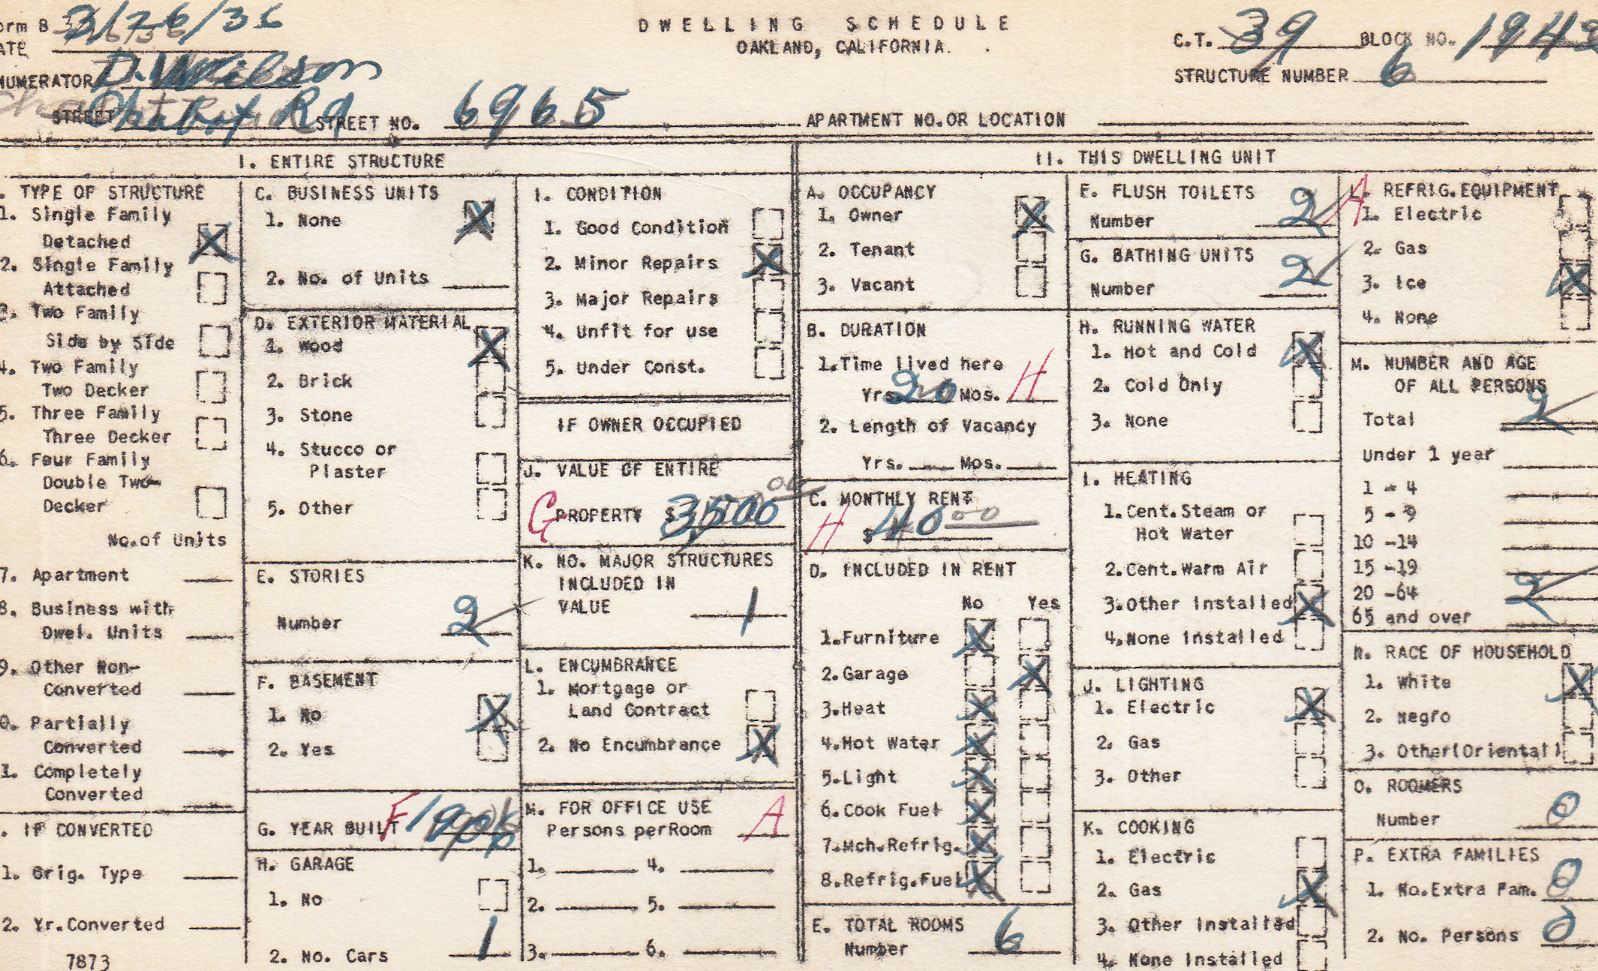 orm 8
3/26/36
DWELLING SCHEDULE
OAKLAND, CALIFORNIA.
C.T. 39 BLOCK NO.
ATE
NUMERATOR D. Wilson
STRUCTURE NUMBER 6
STREET Chabot Rd STREET NO. 6965 APARTMENT NO. OR LOCATION
I. ENTIRE STRUCTURE
. TYPE OF STRUCTURE
1. Single Family
Detached X
2. Single Family
Attached
3. Two Family
Side by Side
4. Two Family
Two Decker
5. Three Family
Three Decker
6. Four Family
Double Two-
Decker
No. of Units
7. Apartment
8. Business with
Dwel. Units
9. Other Non-
Converted
0. Partially
Converted
1. Completely
Converted
. IF CONVERTED
1. Orig. Type
2. Yr. Converted
7873
C. BUSINESS UNITS
1. None X
2. No. of Units
D. EXTERIOR MATERIAL
1. Wood X
2. Brick
3. Stone
4. Stucco or
Plaster
5. Other
E. STORIES
Number 2
F. BASEMENT
1. No X
2. Yes
G. YEAR BUILT F
H. GARAGE
1. No
2. No. Cars 1
I. CONDITION
1. Good Condition
2. Minor Repairs X
3. Major Repairs
4. Unfit for use
5. Under Const.
IF OWNER OCCUPIED
J. VALUE OF ENTIRE
G PROPERTY $ 3500 00
K. NO. MAJOR STRUCTURES
INCLUDED IN
VALUE 1
L. ENCUMBRANCE
1. Mortgage or
Land Contract
2. No Encumbrance X
M. FOR OFFICE USE
Persons perRoom A
1. 4.
2. 5.
3. 6.
II. THIS DWELLING UNIT
A. OCCUPANCY
1. Owner X
2. Tenant
3. Vacant
B. DURATION
1.Time lived here
Yrs. 20 Mos. H
2. Length of Vacancy
Yrs. Mos.
C. MONTHLY RENT
H $ 40 00
D. INCLUDED IN RENT
No Yes
1.Furniture X
2.Garage X
3.Heat X
4.Hot Water X
5.Light X
6.Cook Fuel X
7.Mch.Refrig. X
8.Refrig.Fuel X
E. TOTAL ROOMS
Number 6
F. FLUSH TOILETS
Number 2
G. BATHING UNITS
Number 2
H. RUNNING WATER
1. Hot and Cold X
2. Cold Only
3. None
I. HEATING
1.Cent.Steam or
Hot Water
2.Cent.Warm Air
3.Other Installed X
4.None Installed
J. LIGHTING
1. Electric X
2. Gas
3. Other
K. COOKING
1. Electric
2. Gas X
3. Other Installed
4. None Installed
A . REFRIG.EQUIPMENT
1. Electric
2. Gas
3. Ice X
4. None
M. NUMBER AND AGE
OF ALL PERSONS
Total 2
Under 1 year
1 - 4
5 - 9
10 -14
15 -19
20 -64 2
65 and over
N. RACE OF HOUSEHOLD
1. White X
2. Negro
3. Other(Oriental)
O. ROOMERS
Number 0
P. EXTRA FAMILIES
1. No.Extra Fam. 0
2. No. Persons 0